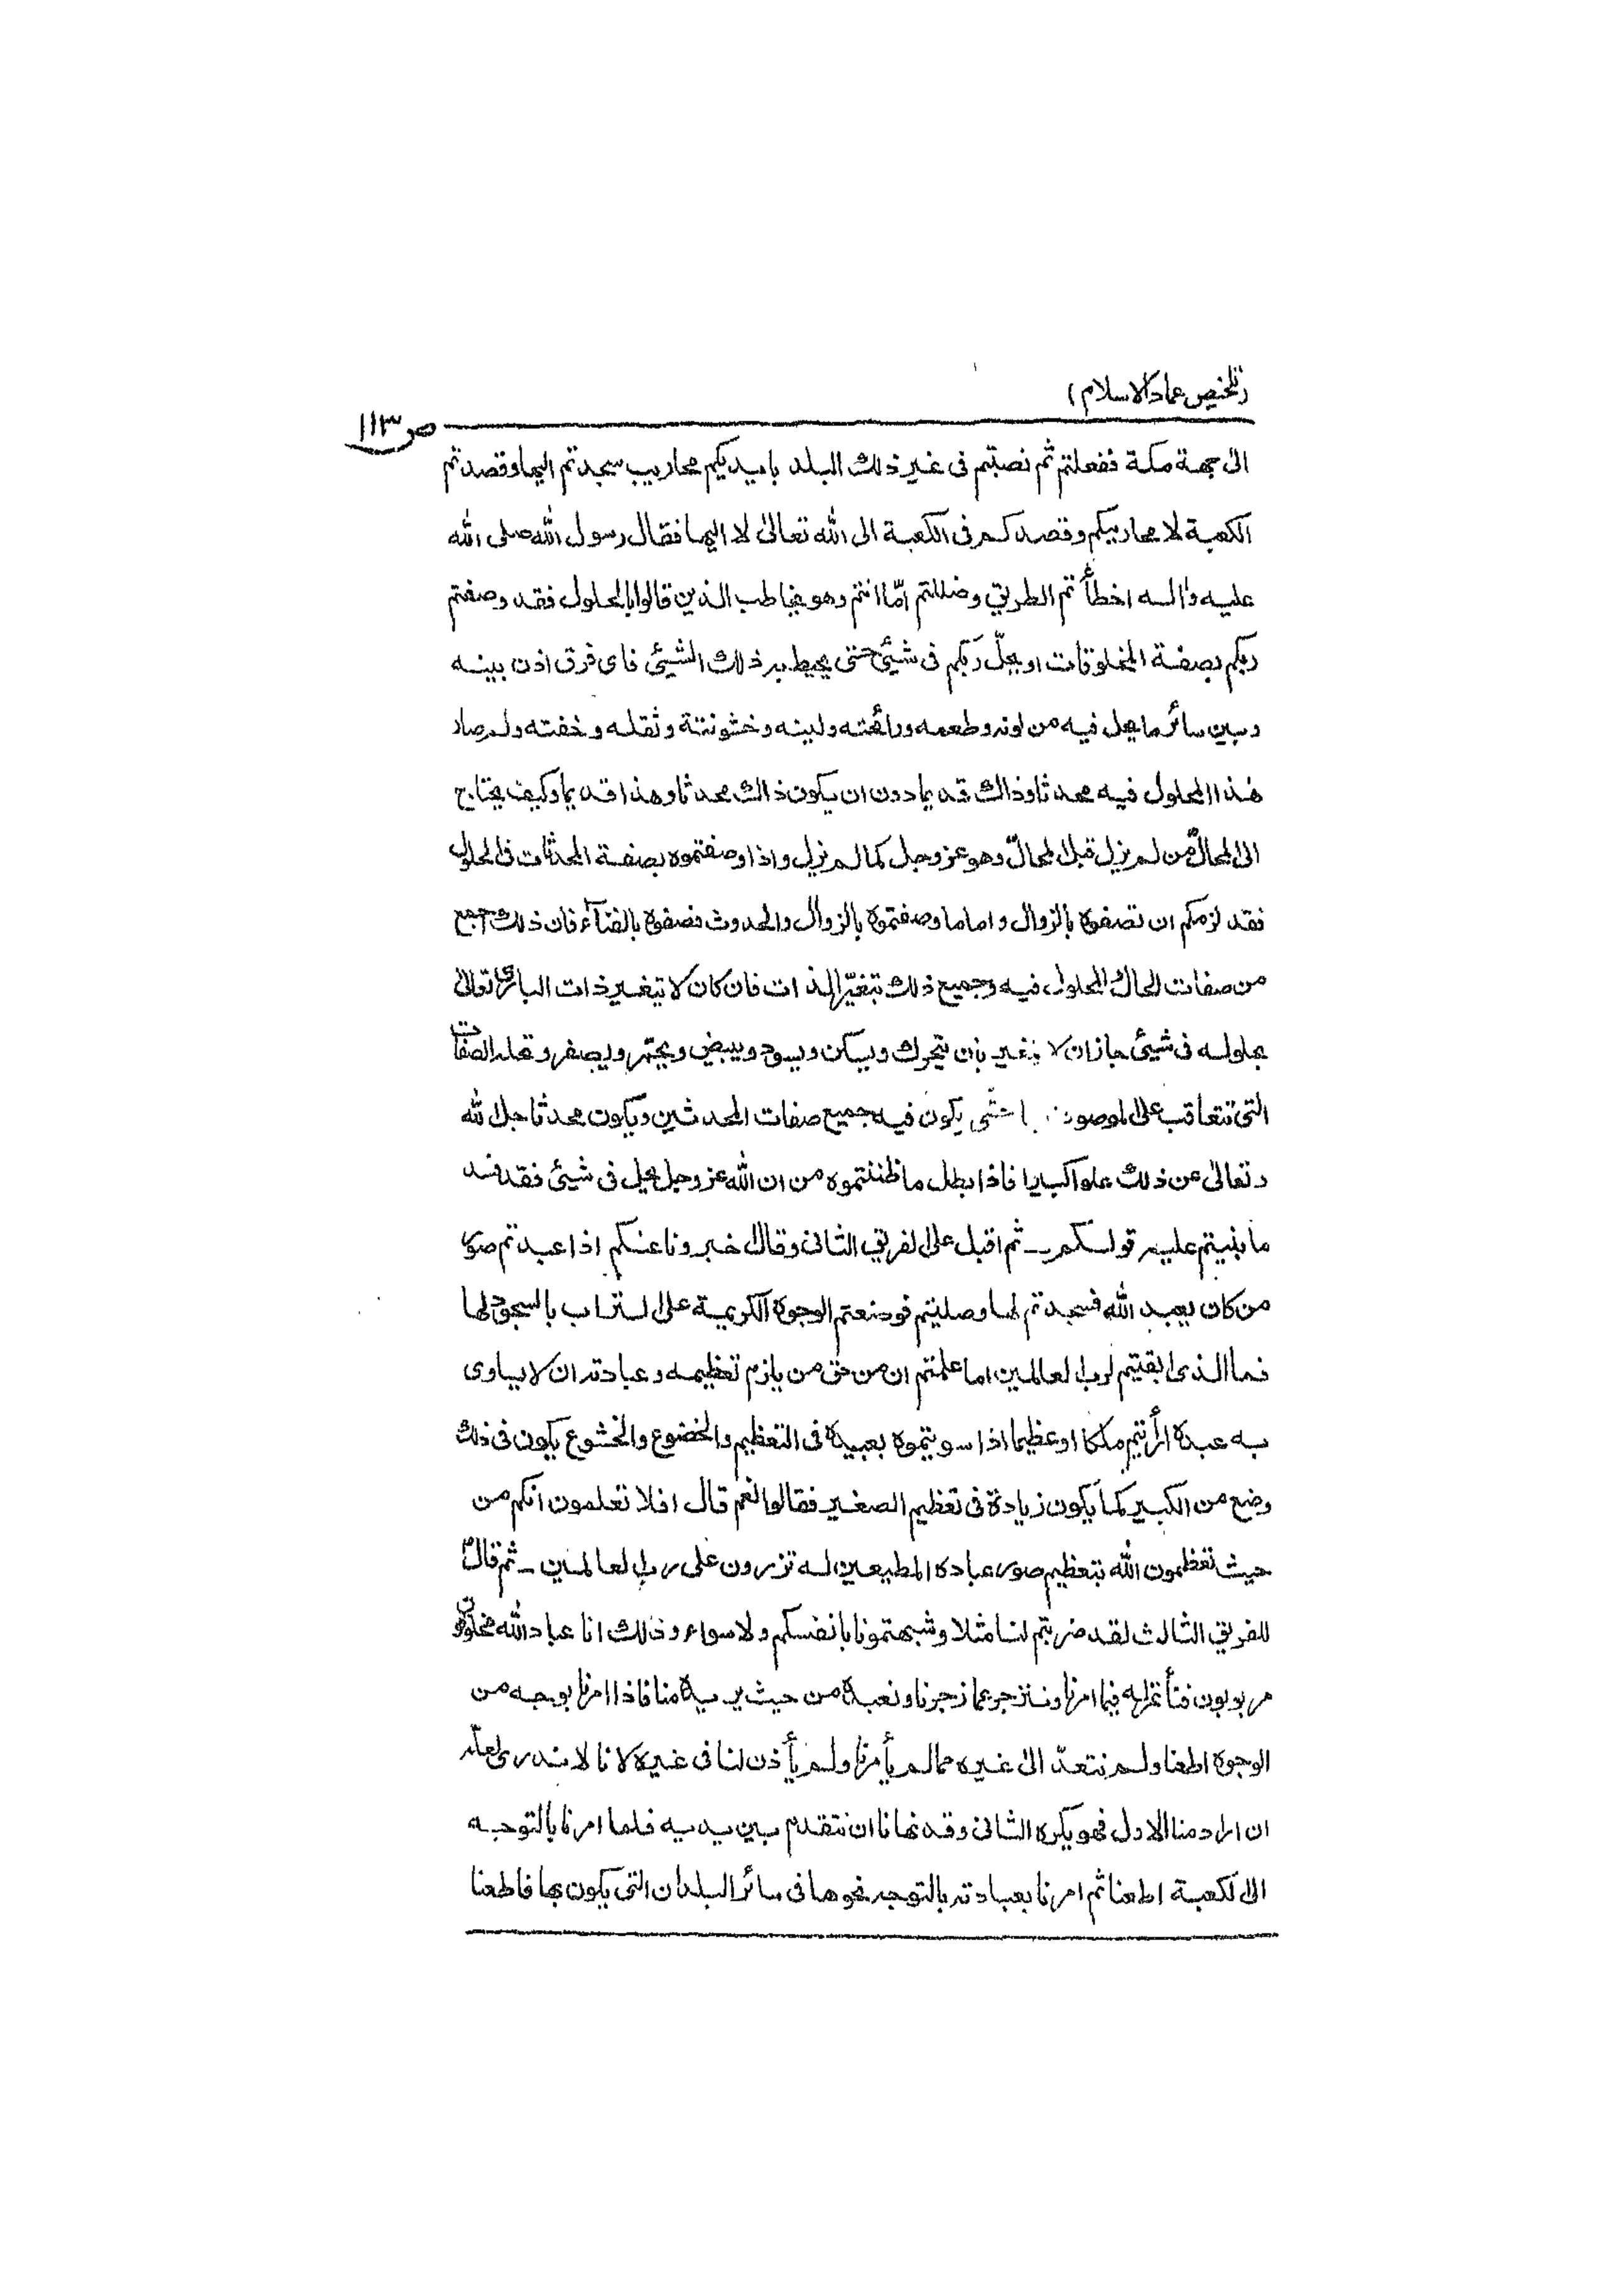 (تلخيص عماد الاسلام)
ص ١١٣
الى جهة مكة ففعلتم ثم نصبتم فى غير ذلك البلد بايديكم محاريب سجدتم اليها وقصدتم
الكعبة لا محاريبكم وقصدكم فى الكعبة الى الله تعالى لا اليها فقال رسول الله صلى الله
عليه واٰله اخطأتم الطريق وضللتم امّا انتم وهو يخاطب الذين قالوا بالحلول فقد وصفتم
ربكم بصفة المخلوقات او يحلّ ربّكم فى شيئ حتى يحيط به ذلك الشيئ فاى فرق اذن بينه
وبين سائر ما يحل فيه من لونه وطعمه ورائحته ولينه وخشونته وثقله وخفته ولم صار
هذا المحلول فيه محدثا وذالك قديما دون ان يكون ذالك محدثا وهذا قديما وكيف يحتاج
الى المحالّ من لم يزل قبل المحالّ وهو عز وجل كما لم يزل واذا وصفتموه بصفة المحدثات فى الحلول
فقد لزمكم ان تصفوه بالزوال واما ما وصفتموه بالزوال والحدوث فصفوه بالفنآء فان ذلك اجمع
من صفات الحال المحلول فيه وجميع ذلك يتغيّر الذات فان كان لا يتغير ذات البارئ تعالى
بحلوله فى شيئ جاز ان لا يتغير بان يتحرك ويسكن ويسود ويبيض ويحمّر ويصفر وتحله الصفات
التى تتعاقب على الموصوف حتّى يكون فيه جميع صفات المحدثين ويكون محدثا جل الله
وتعالى عن ذلك علوا كبيرا فاذا بطل ما ظننتموه من ان الله عز وجل يحل فى شيئ فقد فسد
ما بنيتم عليه قولكم ــ ثم اقبل على الفريق الثانى وقال خبرونا عنكم اذا عبدتم صور
من كان يعبد الله فسجدتم لها وصليتم فوضعتم الوجوه الكريمة على التراب بالسجود لها
فما الذى ابقيتم لرب العالمين اما علمتم ان من حق من يلزم تعظيمه وعبادته ان لا يساوى
به عبده ارأيتم ملكا او عظيما اذا سويتموه بعبيده فى التعظيم والخضوع والخشوع يكون فى ذلك
وضع من الكبير كما يكون زيادة فى تعظيم الصغير فقالوا نعم قال افلا تعلمون انكم من
حيث تعظمون الله بتعظيم صور عباده المطيعين له تزرون على رب العالمين ــ ثم قال
للفريق الثالث لقد ضربتم لنا مثلا وشبهتمونا بانفسكم ولا سواء وذلك انا عباد الله مخلوقون
مربوبون فنأتمر له فيما امرنا وننزجر عما زجرنا ونعبده من حيث يريده منا فاذا امرنا بوجه من
الوجوه اطعنا ولم نتعدّ الى غيره مما لم يأمرنا ولم يأذن لنا فى غيره لانا لا ندرى لعلّه
ان اراد منا الاول فهو يكره الثانى وقد نهانا ان نتقدم بين يديه فلما امرنا بالتوجه
الى الكعبة اطعنا ثم امرنا بعبادته بالتوجه نحوها فى سائر البلدان التى يكون بها فاطعنا